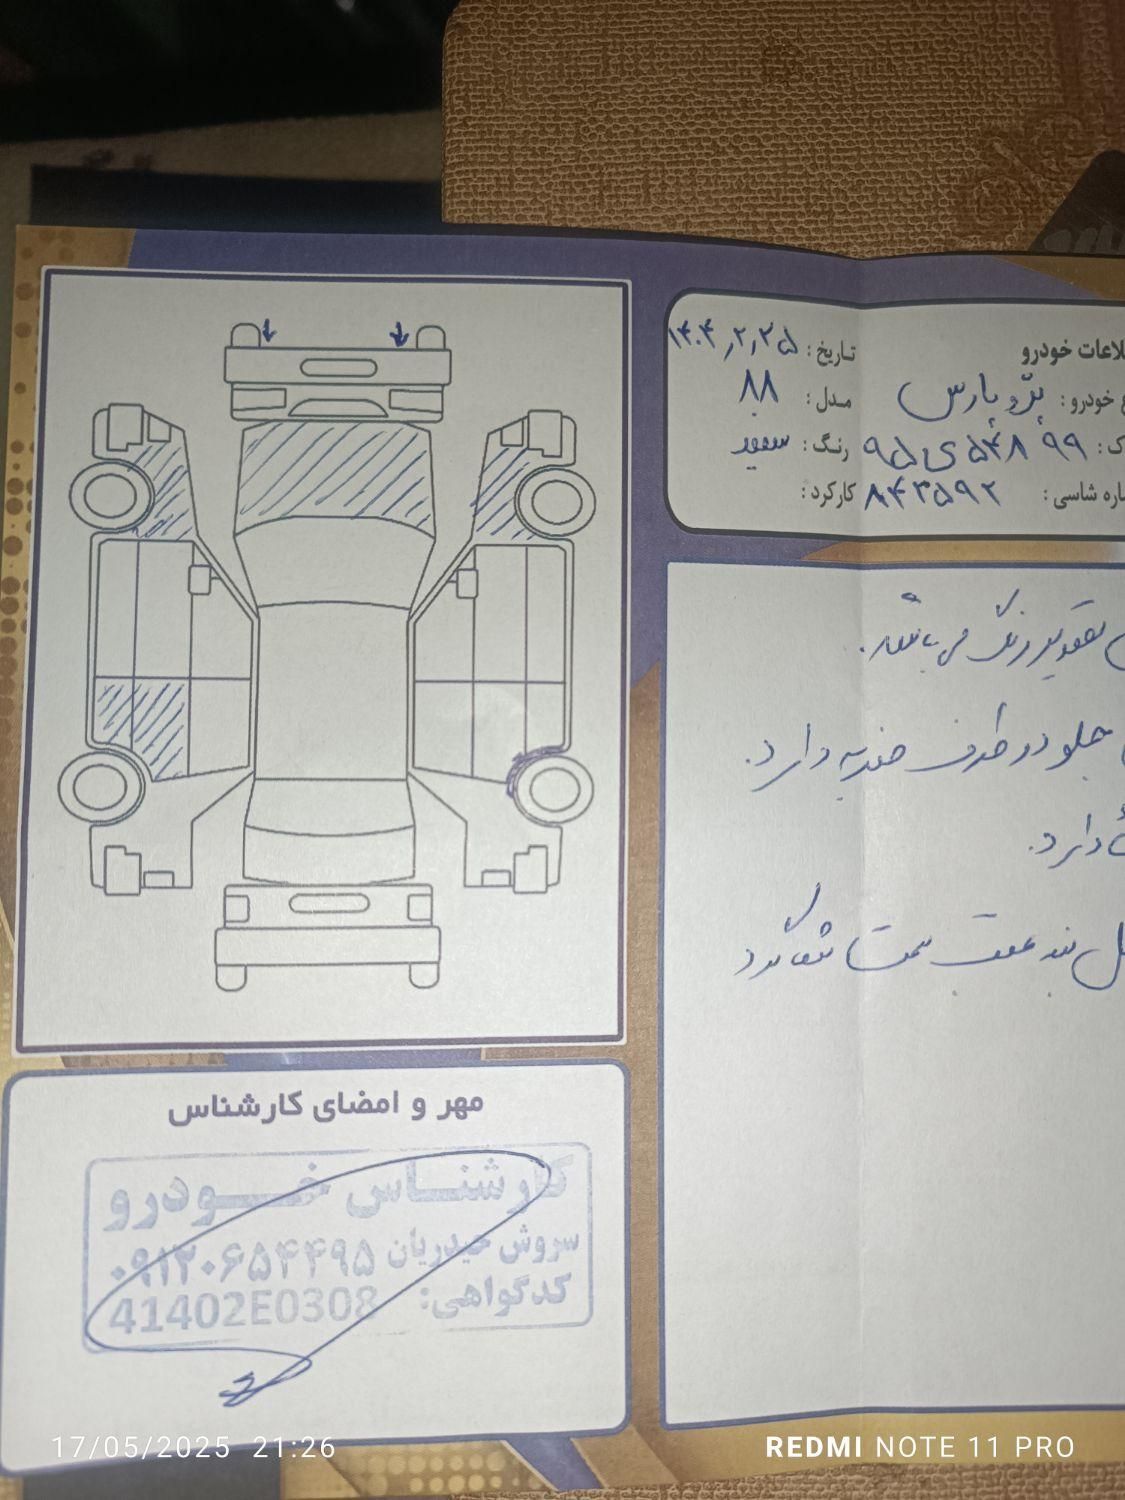 اطلاعات خودرو
تاریخ: ۱۴۰۴,۲,۲۵
نوع خودرو: پژو پارس
مدل: ۸۸
پلاک: ۹۹ ۵۴۸ ی ۹۵
رنگ: سفید
شماره شاسی: ۸۴۳۵۹۲
کارکرد:
تعویض و رنگ می باشد.
جلو دو طرف ضربه دارد.
دارد.
عقب سمت شاگرد
مهر و امضای کارشناس
کارشناس خودرو
سروش حیدریان ۰۹۱۲۰۶۵۴۴۹۵
کدگواهی: 41402E0308
17/05/2025 21:26
REDMI NOTE 11 PRO